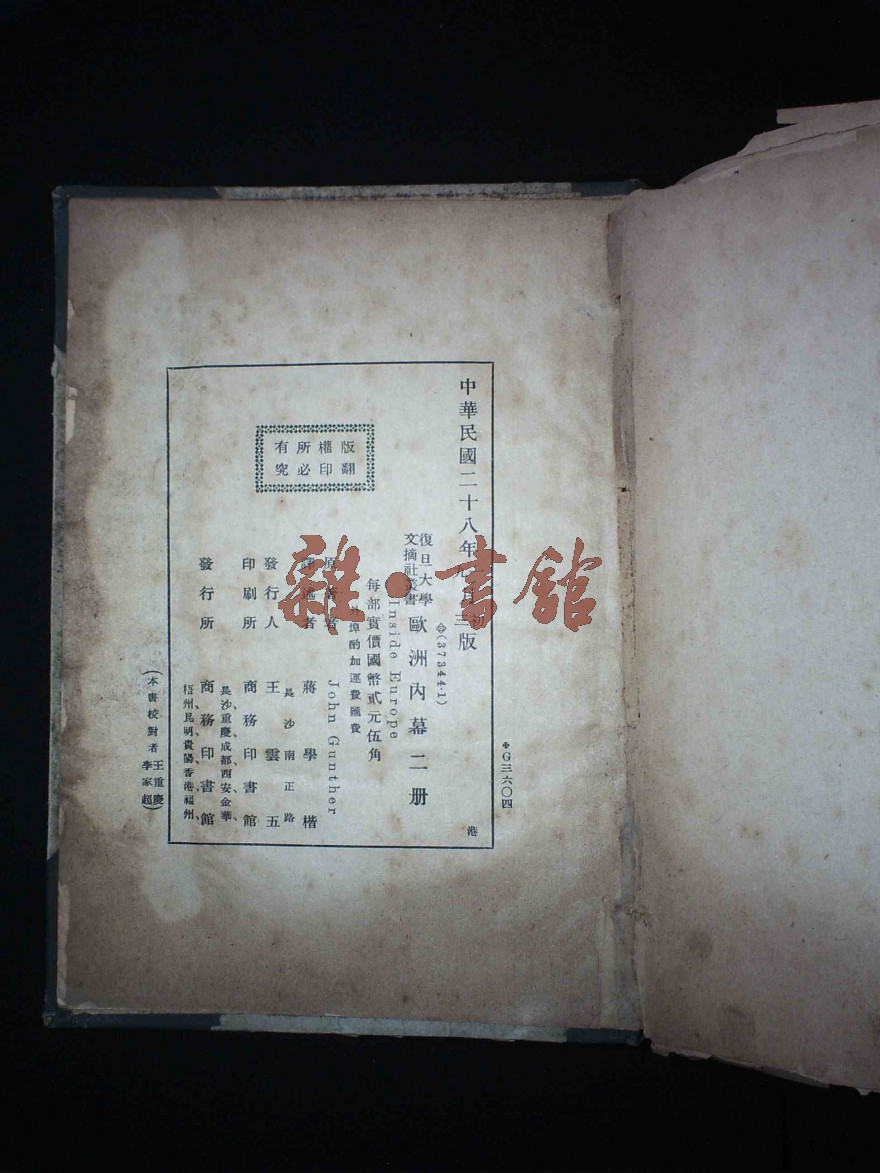 G三六〇四
中華民國二十八年 月 三版
(37344·1)
復旦大學
文摘社叢書
歐洲內幕二册
港
Inside Europe
每部實價國幣貳元伍角
外埠酌加運費匯費
原著者 John Gunther
譯述者 蔣學楷
長沙南正路
發行人 王雲五
印刷所 商務印書館
發行所 商務印書館
長沙、重慶、成都、西安、金華、
梧州、昆明、貴陽、香港、福州、
(本書校對者 王重慶
李家超)
版權所有
翻印必究
雜·書館